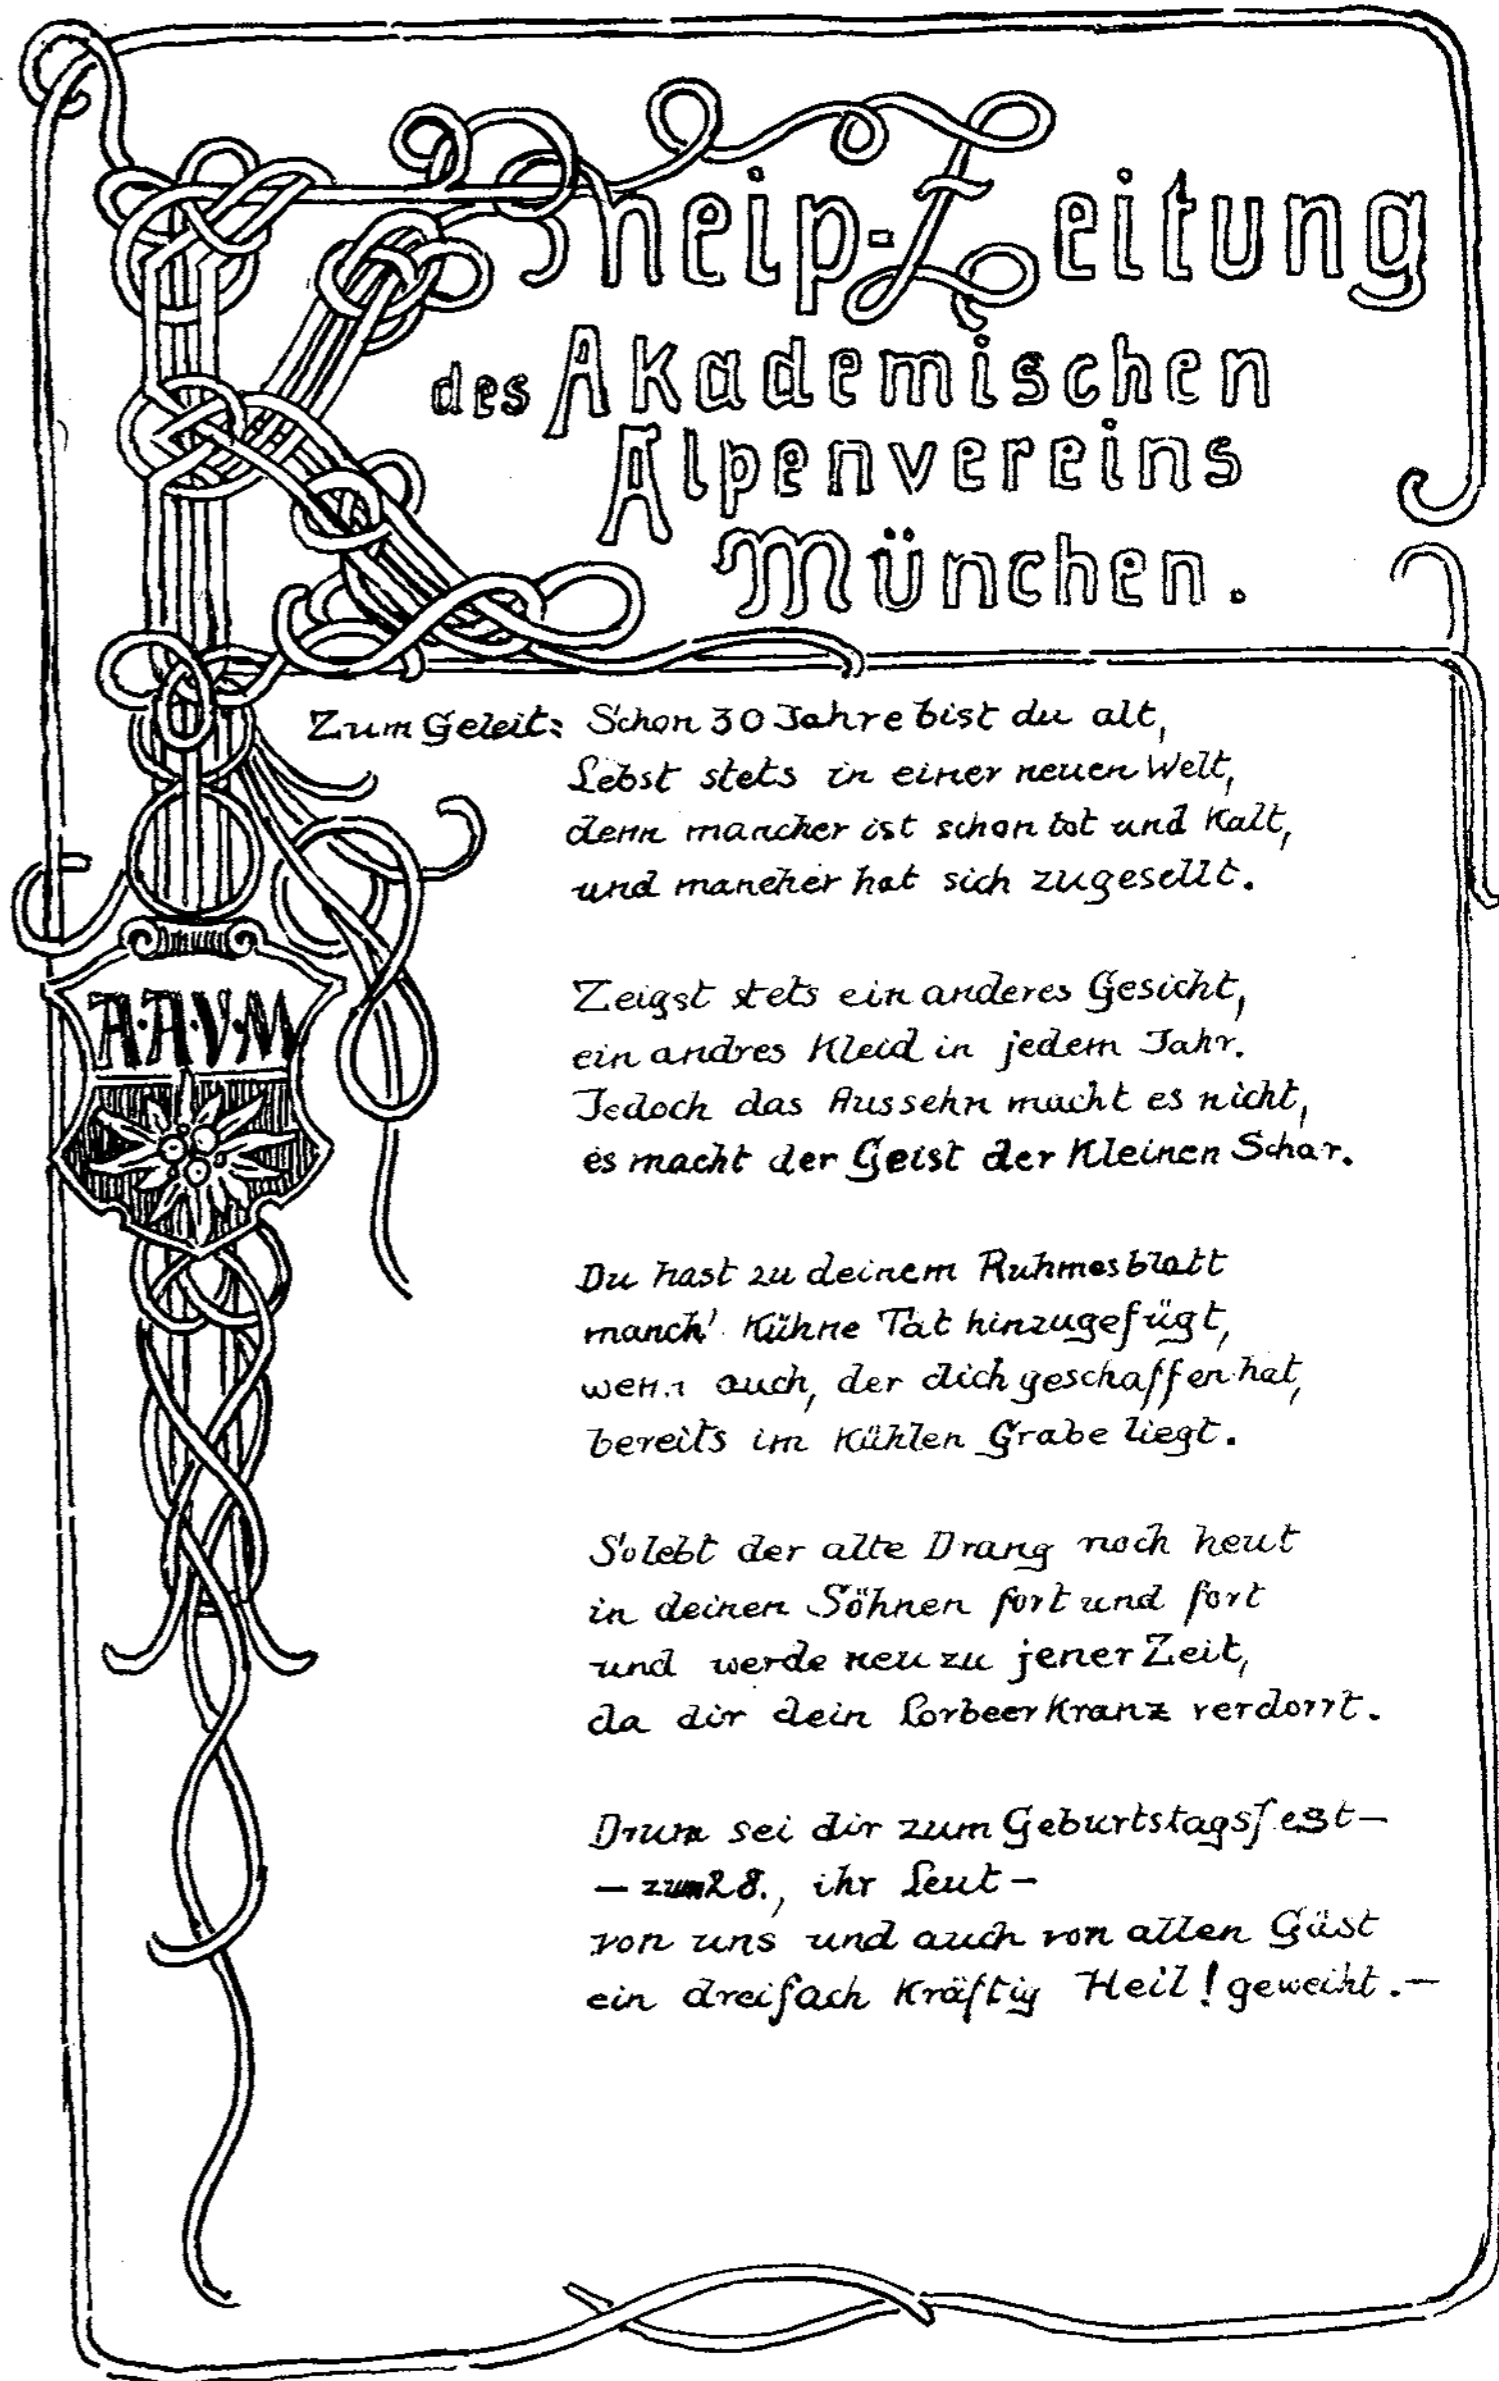 Kneip-Zeitung
des Akademischen
Alpenvereins
München.
Zum Geleit: Schon 30 Jahre bist du alt,
Lebst stets in einer neuen Welt,
denn mancher ist schon tot und kalt,
und mancher hat sich zugesellt.
Zeigst stets ein anderes Gesicht,
ein andres Kleid in jedem Jahr.
Jedoch das Aussehn macht es nicht,
es macht der Geist der kleinen Schar.
A.A.V.M
Du hast zu deinem Ruhmesblatt
manch' kühne Tat hinzugefügt,
wenn auch, der dich geschaffen hat,
bereits im kühlen Grabe liegt.
So lebt der alte Drang noch heut
in deinen Söhnen fort und fort
und werde neu zu jener Zeit,
da dir dein Lorbeerkranz verdorrt.
Drum sei dir zum Geburtstagsfest—
— zum 28., ihr Leut —
von uns und auch von allen Gäst
ein dreifach kräftig Heil! geweiht.—